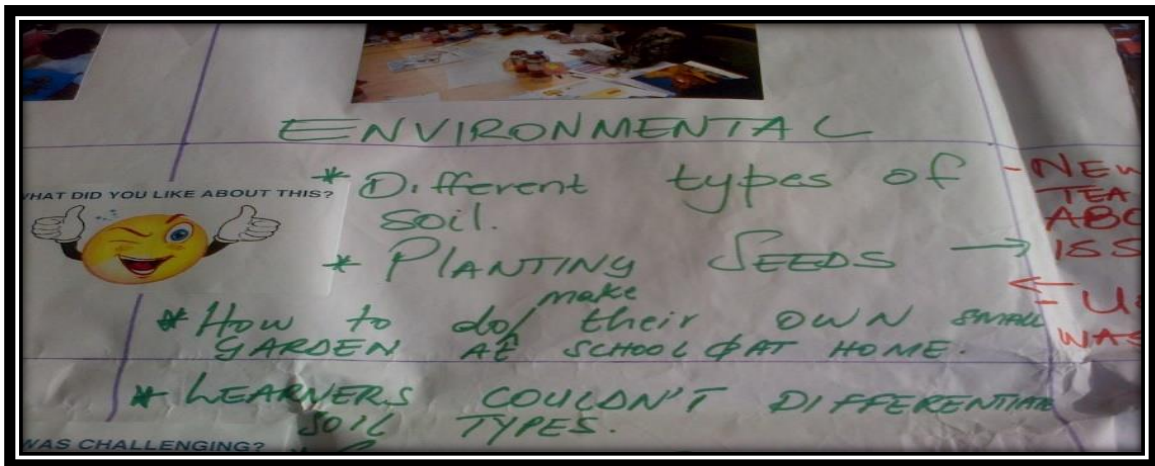 ENVIRONMENTAL
WHAT DID YOU LIKE ABOUT THIS?
* Different types of
soil.
* PLANTING SEEDS →
make
* How to do/ their OWN SMALL
GARDEN AT SCHOOL & AT HOME.
* LEARNERS COULDN'T DIFFERENTIATE
SOIL TYPES.
WAS CHALLENGING?
- NEW
ISS
←